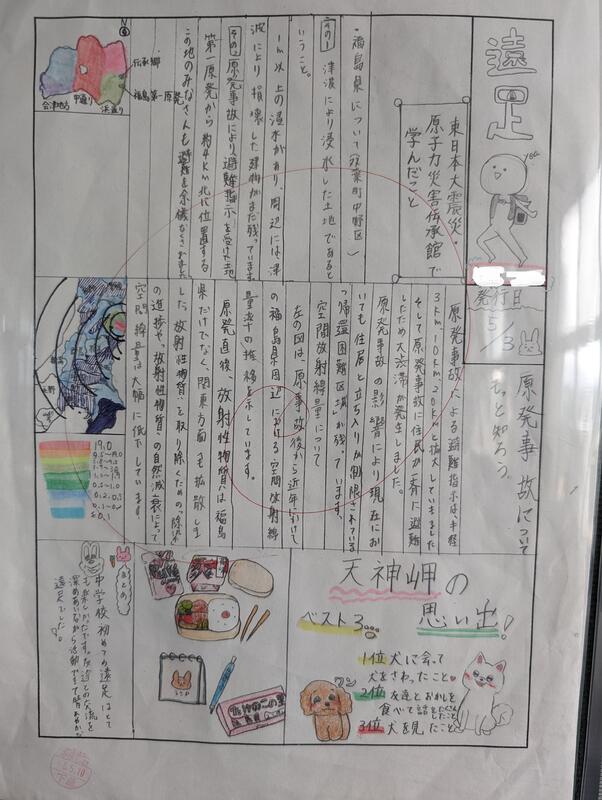 遠足
yeah
発行日
5/3
東日本大震災・
原子力災害伝承館で
学んだこと
・福島県について(双葉町中野区)
その1 津波により浸水した土地であると
いうこと。
1m以上の浸水があり、周辺には津
波により損壊した建物がまだ残っています。
その2 原発事故により避難指示を受けた地
第一原発から約4km北に位置する
この地のみなさんも避難を余儀なくされました
N
伝承郷
福島第一原発
会津地方
中通り
浜通り
原発事故について
もっと知ろう。
原発事故による避難指示は、半径
3km、10km、20kmと拡大していきました
そして原発事故に住民が一斉に避難
したため大渋滞が発生しました。
原発事故の影響により現在にお
いても住居と立ち入りが制限されている
「帰還困難区域」が残っています。
空間放射線量について
左の図は、原事故後から近年にかけて
の福島県周辺における空間放射線
量率の推移を示しています。
原発直後、放射性物質は福島
県だけでなく、関東方面にも拡散しま
した。放射性物質を取り除くための「除染」
の進歩や、放射性物質の自然減衰によって
空間線量は大幅に低下しています。
19.0
天神岬の
思い出!
ベスト3
1位 犬に会って
犬をさわったこと
2位 友達とおかしを
食べて話をたくさん
したこと
3位 犬を見たこと
ワン
たけのこの里
まとめ
中学校初めての遠足はとて
も楽しかったです。友達との交流を
深めあいながら活動できて
遠足でした。
5.10